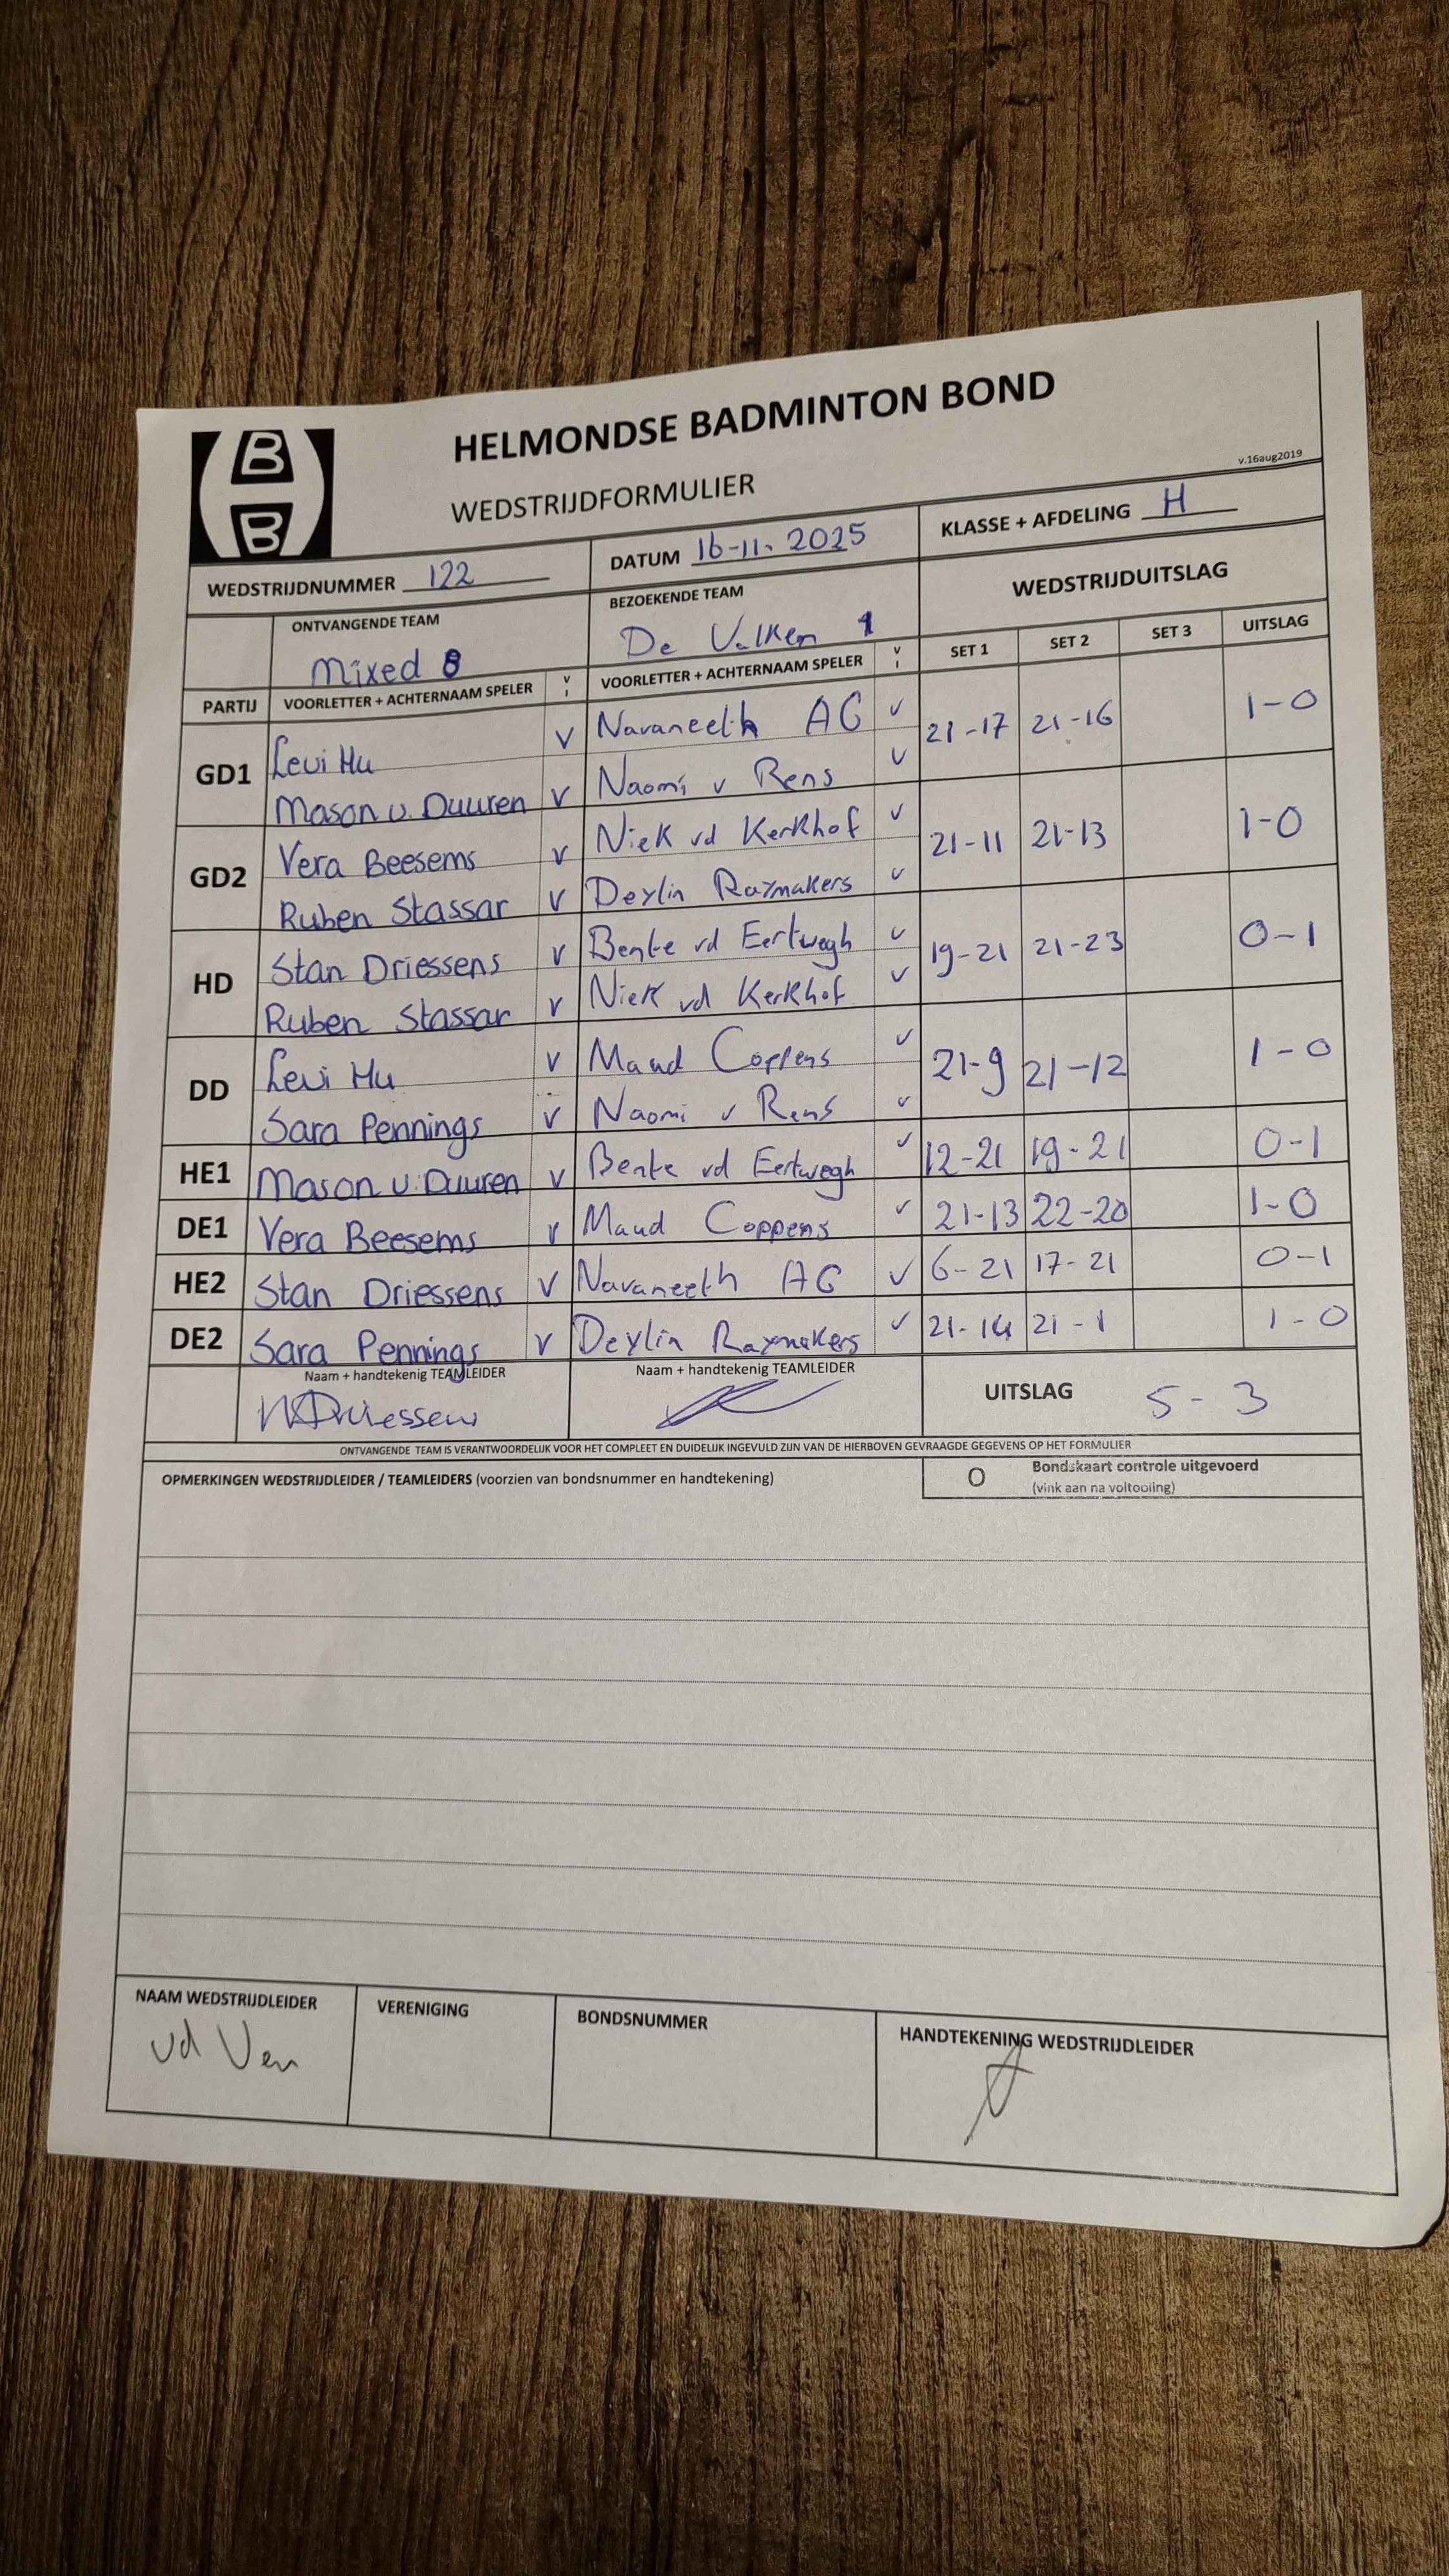 B
B
HELMONDSE BADMINTON BOND
WEDSTRIJDFORMULIER
v.16aug2019
WEDSTRIJDNUMMER 122
DATUM 16-11-2025
KLASSE + AFDELING H
ONTVANGENDE TEAM
Mixed 8
BEZOEKENDE TEAM
De Valken 1
WEDSTRIJDUITSLAG
PARTIJ VOORLETTER + ACHTERNAAM SPELER V VOORLETTER + ACHTERNAAM SPELER V SET 1 SET 2 SET 3 UITSLAG
GD1 Levi Hu V Navaneeth AG V 21-17 21-16 1-0
Mason v. Duuren V Naomi v Rens V
GD2 Vera Beesems V Niek vd Kerkhof V 21-11 21-13 1-0
Ruben Stassar V Deylin Raymakers V
HD Stan Driessens V Bente vd Eertwegh V 19-21 21-23 0-1
Ruben Stassar V Niek vd Kerkhof V
DD Levi Hu V Maud Coppens V 21-9 21-12 1-0
Sara Pennings V Naomi v Rens V
HE1 Mason v. Duuren V Bente vd Eertwegh V 12-21 19-21 0-1
DE1 Vera Beesems V Maud Coppens V 21-13 22-20 1-0
HE2 Stan Driessens V Navaneeth AG V 6-21 17-21 0-1
DE2 Sara Pennings V Deylin Raymakers V 21-14 21-1 1-0
Naam + handtekenig TEAMLEIDER Naam + handtekenig TEAMLEIDER
UITSLAG 5-3
ONTVANGENDE TEAM IS VERANTWOORDELIJK VOOR HET COMPLEET EN DUIDELIJK INGEVULD ZIJN VAN DE HIERBOVEN GEVRAAGDE GEGEVENS OP HET FORMULIER
OPMERKINGEN WEDSTRIJDLEIDER / TEAMLEIDERS (voorzien van bondsnummer en handtekening)
O Bondskaart controle uitgevoerd
(vink aan na voltooiing)
NAAM WEDSTRIJDLEIDER VERENIGING BONDSNUMMER HANDTEKENING WEDSTRIJDLEIDER
vd Ven